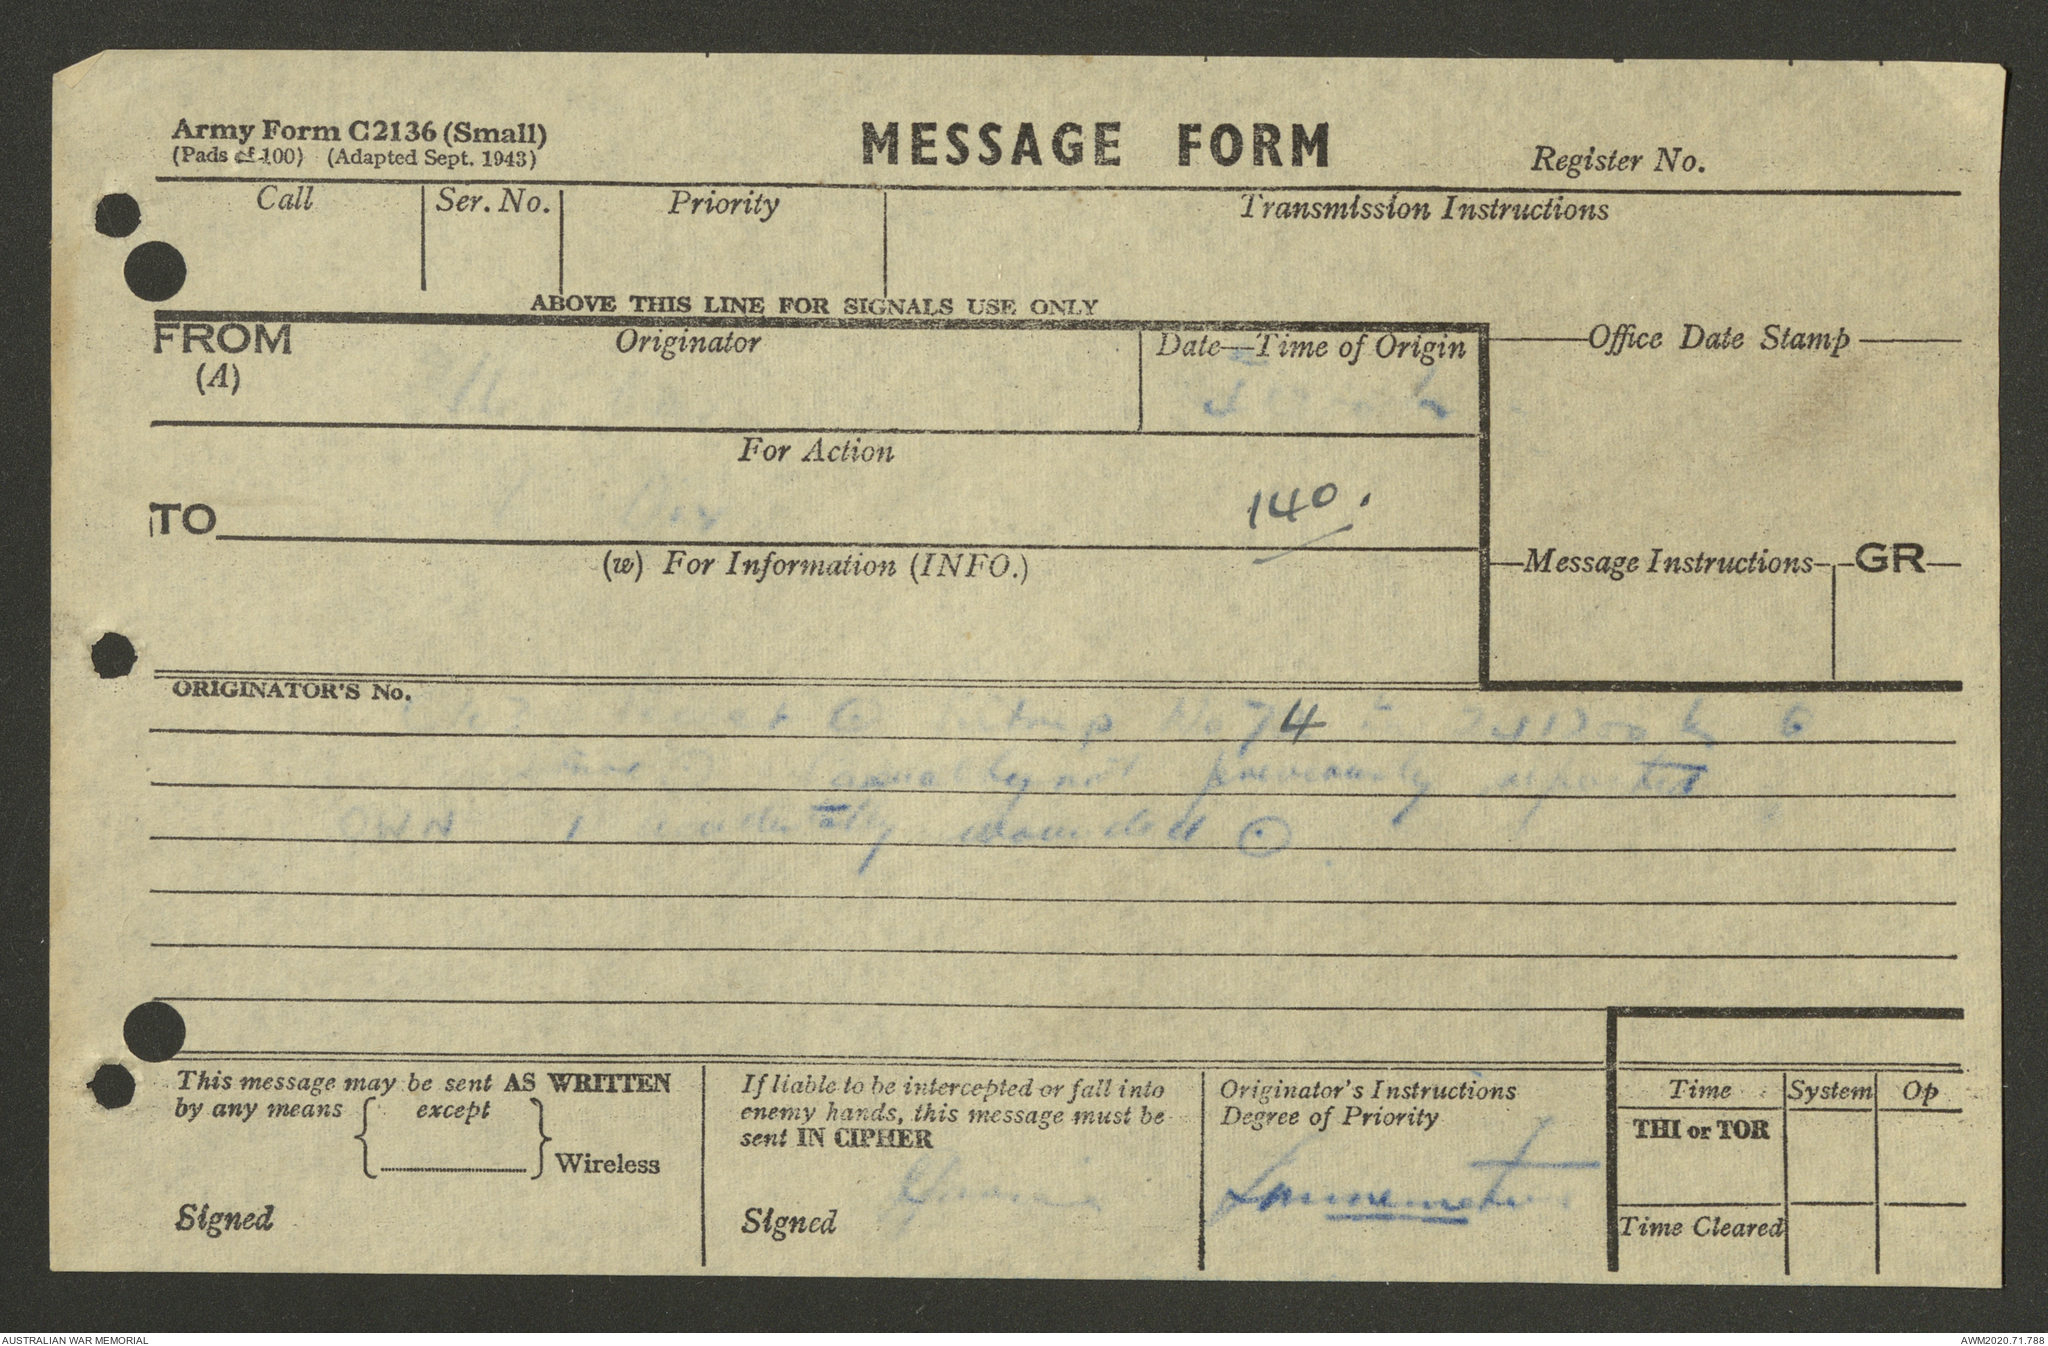 Army Form C2136 (Small)
(Pads of 100) (Adapted Sept. 1943)
MESSAGE FORM
Register No.
Call
Ser. No.
Priority
Transmission Instructions
ABOVE THIS LINE FOR SIGNALS USE ONLY
FROM
(A)
Originator
Date—Time of Origin
Office Date Stamp
For Action
TO
140.
(w) For Information (INFO.)
Message Instructions
GR
ORIGINATOR'S No.
4
casualty not previously reported
OWN 1 accidentally wounded
This message may be sent AS WRITTEN
by any means { except } Wireless
Signed
If liable to be intercepted or fall into
enemy hands, this message must be
sent IN CIPHER
Signed
Originator's Instructions
Degree of Priority
Time
System
Op
THI or TOR
Time Cleared
AUSTRALIAN WAR MEMORIAL
AWM2020.71.788